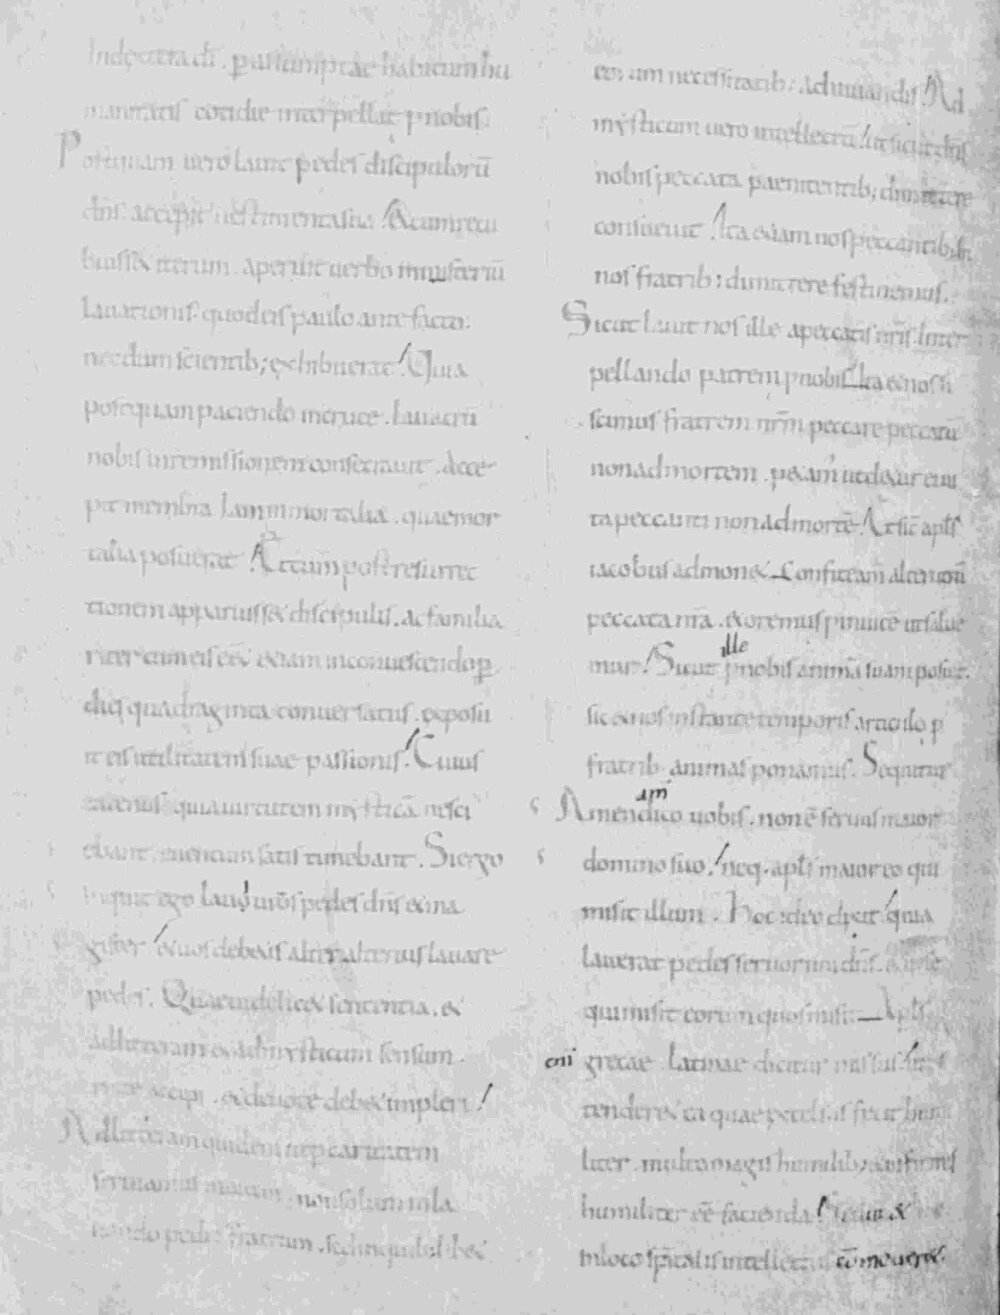 indextera dī . p assumptae habitum hu
manitatis cotidie interpellat p nobis.
Postquam uero lauit pedes discipulorū
dn̄s accepit uestimenta sua / Et cum recu
buisset iterum . aperuit uerbo mysteriū
lauationis . quod eis paulo ante facto.
necdum scientib; exhibuerat / Quia
postquam patiendo mortuus lauacrū
nobis in remissionem consecrauit . acce
pit membra iam inmortalia . quae mor
talia posuerat / At cum post resurrec
tionem apparuisset discipulis . ac familia
riter cum eis etiam in conuescendo p
dies quadraginta conuersatus . exposu
it eis utilitatem suae passionis. / Cuius
eatenus quia uirtutem mysticā nesci
ebant . euentum satis timebant . Si ergo
inquit ego laui ur̄os pedes dn̄s et ma
gister / et uos debetis alter alterius lauare
pedes . Quae uidelicet sententia . et
ad litteram et ad mysticum sensum .
recte accipi . et deuote debet impleri /
Ad litteram quidem ut p caritatem
seruiamus inuicem . non solum in la
uando pedes fratrum . sed in quibuslibet
eorum necessitatib; adiuuandis / Ad
mysticum uero intellectū / ut sicut dn̄s
nobis peccata paenitentib; dimittere
consueuit / Ita etiam nos peccantib; in
nos fratrib; dimittere festinemus.
Sicut lauit nos ille a peccatis nr̄is inter
pellando patrem p nobis / Ita et nos si
scimus fratrem nr̄m peccare peccatū
non ad mortem . petam' ut detur ei ui
ta peccanti non ad mortē / Et sic apl̄s
iacobus admonet / Confiteam' alterutrū
peccata nr̄a . et oremus p inuicē ut salue
mur / Sicut ille p nobis animā suam posuit.
sic et nos instante temporis articulo p
fratrib; animas ponamus . Sequitur
Amen am̄ dico uobis . non ē seruus maior
domino suo / neq. apl̄s maior eo qui
misit illum . Hoc ideo dixit / quia
lauerat pedes seruorum dn̄s . et ipse
qui misit eorum quos misit — Apl̄s
eni' grecae . latinae dicitur missus /
tendere et ea quae excelsus fecit humi
liter multo magis humilib; et infirmis
humiliter eē facienda /
in loco sp̄italis intellectus cōmouetes.